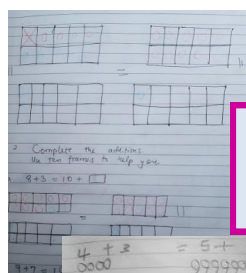 =
2 Complete the additions
Use ten frames to help you.
8+3 = 10 +
=
9+7 =
4 + 3 = 5+